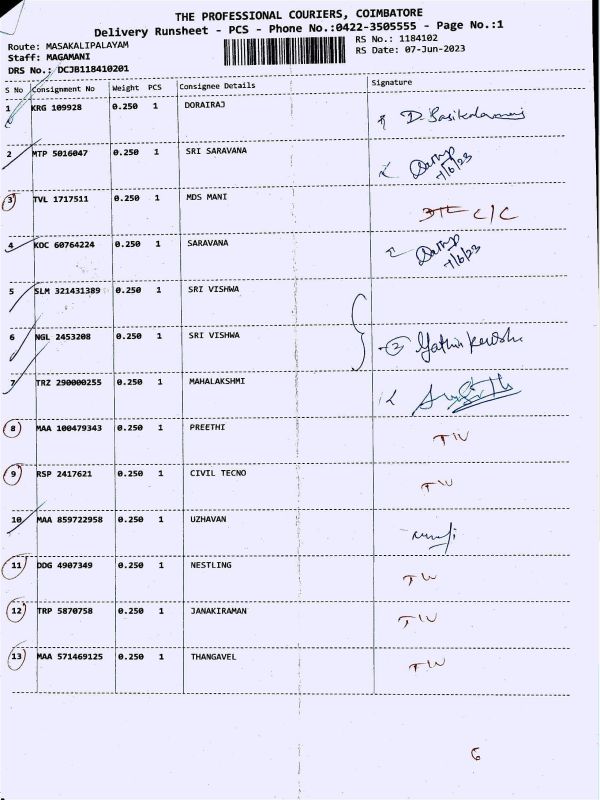 THE PROFESSIONAL COURIERS, COIMBATORE
Delivery Runsheet - PCS - Phone No.:0422-3505555 - Page No.:1
Route: MASAKALIPALAYAM RS No.: 1184102
Staff: MAGAMANI RS Date: 07-Jun-2023
DRS No.: DCJB118410201
S No Consignment No Weight PCS Consignee Details Signature
1 KRG 109928 0.250 1 DORAIRAJ
2 MTP 5016047 0.250 1 SRI SARAVANA 7/6/23
3 TVL 1717511 0.250 1 MDS MANI C/C
4 KDC 60764224 0.250 1 SARAVANA 7/6/23
5 SLM 321431389 0.250 1 SRI VISHWA
6 NGL 2453208 0.250 1 SRI VISHWA 2
7 TRZ 290000255 0.250 1 MAHALAKSHMI
8 MAA 100479343 0.250 1 PREETHI
9 RSP 2417621 0.250 1 CIVIL TECNO
10 MAA 859722958 0.250 1 UZHAVAN
11 DDG 4907349 0.250 1 NESTLING
12 TRP 5870758 0.250 1 JANAKIRAMAN
13 MAA 571469125 0.250 1 THANGAVEL
6